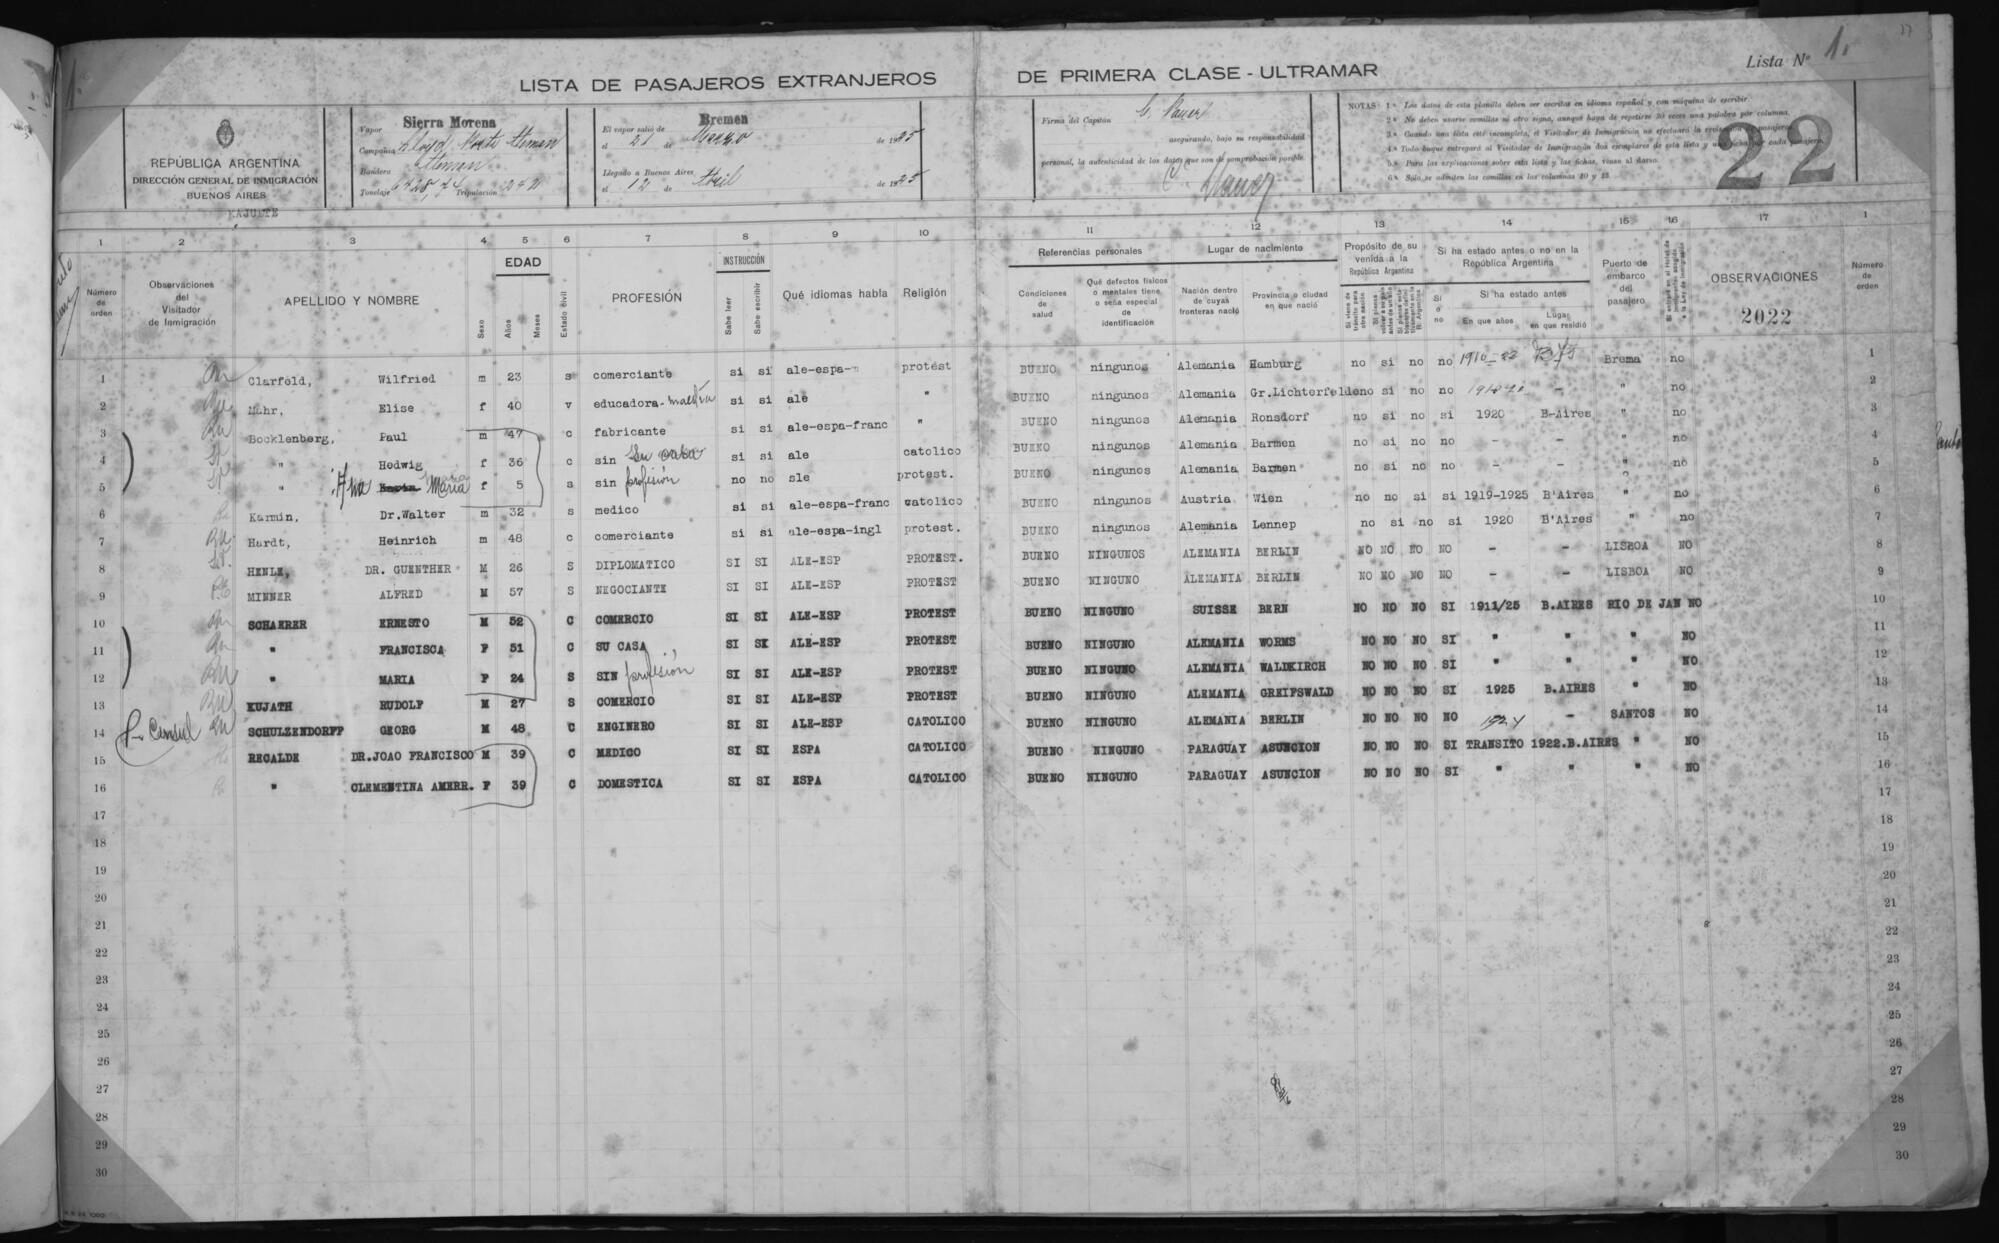 Lista Nº 1.
LISTA DE PASAJEROS EXTRANJEROS DE PRIMERA CLASE - ULTRAMAR
REPÚBLICA ARGENTINA
DIRECCIÓN GENERAL DE INMIGRACIÓN
BUENOS AIRES
KAJUETE
Vapor Sierra Morena
Compañía Lloyd Norte Aleman
Bandera Aleman
Tonelaje Tripulación 242
Bremen
El vapor salió de
el 21 de Marzo de 1925
Llegado a Buenos Aires
el 12 de Abril de 1925
Firma del Capitán
asegurando, bajo su responsabilidad
personal, la autenticidad de los datos que son de comprobación posible.
NOTAS 1.ª Los datos de esta planilla deben ser escritos en idioma español y con máquina de escribir.
2.ª No deben usarse comillas ni otro signo, aunque haya de repetirse 30 veces una palabra por columna.
3.ª Cuando una lista esté incompleta, el Visitador de Inmigración no efectuará la revisión de pasajeros.
4.ª Todo buque entregará al Visitador de Inmigración dos ejemplares de esta lista y una ficha por cada pasajero.
5.ª Para las explicaciones sobre esta lista y las fichas, véase al dorso.
6.ª Sólo se admiten las comillas en las columnas 10 y 15.
22
1 2 3 4 5 6 7 8 9 10 11 12 13 14 15 16 17 1
Número de orden
Observaciones del Visitador de Inmigración
APELLIDO Y NOMBRE
Sexo
EDAD
Años
Meses
Estado civil
PROFESIÓN
INSTRUCCIÓN
Sabe leer
Sabe escribir
Qué idiomas habla
Religión
Referencias personales
Condiciones de salud
Qué defectos físicos o mentales tiene o seña especial de identificación
Lugar de nacimiento
Nación dentro de cuyas fronteras nació
Provincia o ciudad en que nació
Propósito de su venida a la República Argentina
Si ha estado antes o no en la República Argentina
Sí o no
Si ha estado antes
En que años
Lugar en que residió
Puerto de embarco del pasajero
OBSERVACIONES
2022
Número de orden
1 Clarfeld, Wilfried m 23 s comerciante si si ale-espa- protest BUENO ningunos Alemania Hamburg no si no no 1910-22 Brema no 1
2 Muhr, Elise f 40 v educadora-maestra si si ale " BUENO ningunos Alemania Gr.Lichterfelde no si no no - " no 2
3 Bocklenberg, Paul m 47 c fabricante si si ale-espa-franc " BUENO ningunos Alemania Ronsdorf no si no si 1920 B-Aires " no 3
4 " Hedwig f 36 c sin su casa si si ale catolico BUENO ningunos Alemania Barmen no si no no - - " no 4
5 " Ana Maria f 5 s sin profesión no no ale protest. BUENO ningunos Alemania Barmen no si no no - - no 5
6 Karmin, Dr.Walter m 32 s medico si si ale-espa-franc catolico BUENO ningunos Austria Wien no no si si 1919-1925 B'Aires " no 6
7 Hardt, Heinrich m 48 c comerciante si si ale-espa-ingl protest. BUENO ningunos Alemania Lennep no si no si 1920 B'Aires " no 7
8 HENLE, DR. GUENTHER M 26 S DIPLOMATICO SI SI ALE-ESP PROTEST. BUENO NINGUNOS ALEMANIA BERLIN NO NO NO NO - - LISBOA NO 8
9 MINNER ALFRED M 57 S NEGOCIANTE SI SI ALE-ESP PROTEST BUENO NINGUNO ALEMANIA BERLIN NO NO NO NO - - LISBOA NO 9
10 SCHAERER ERNESTO M 52 C COMERCIO SI SI ALE-ESP PROTEST BUENO NINGUNO SUISSE BERN NO NO NO SI 1911/25 B.AIRES RIO DE JAN NO 10
11 " FRANCISCA F 51 C SU CASA SI SI ALE-ESP PROTEST BUENO NINGUNO ALEMANIA WORMS NO NO NO SI " " " NO 11
12 " MARIA F 24 S SIN profesión SI SI ALE-ESP PROTEST BUENO NINGUNO ALEMANIA WALDKIRCH NO NO NO SI " " " NO 12
13 KUJATH RUDOLF M 27 S COMERCIO SI SI ALE-ESP PROTEST BUENO NINGUNO ALEMANIA GREIFSWALD NO NO NO SI 1925 B.AIRES " NO 13
Consul
14 SCHULZENDORFF GEORG M 48 C ENGINERO SI SI ALE-ESP CATOLICO BUENO NINGUNO ALEMANIA BERLIN NO NO NO NO 1924 - SANTOS NO 14
15 RECALDE DR.JOAO FRANCISCO M 39 C MEDICO SI SI ESPA CATOLICO BUENO NINGUNO PARAGUAY ASUNCION NO NO NO SI TRANSITO 1922.B.AIRES " NO 15
16 " CLEMENTINA AMERR. F 39 C DOMESTICA SI SI ESPA CATOLICO BUENO NINGUNO PARAGUAY ASUNCION NO NO NO SI " " " NO 16
17 17
18 18
19 19
20 20
21 21
22 22
23 23
24 24
25 25
26 26
27 27
28 28
29 29
30 30